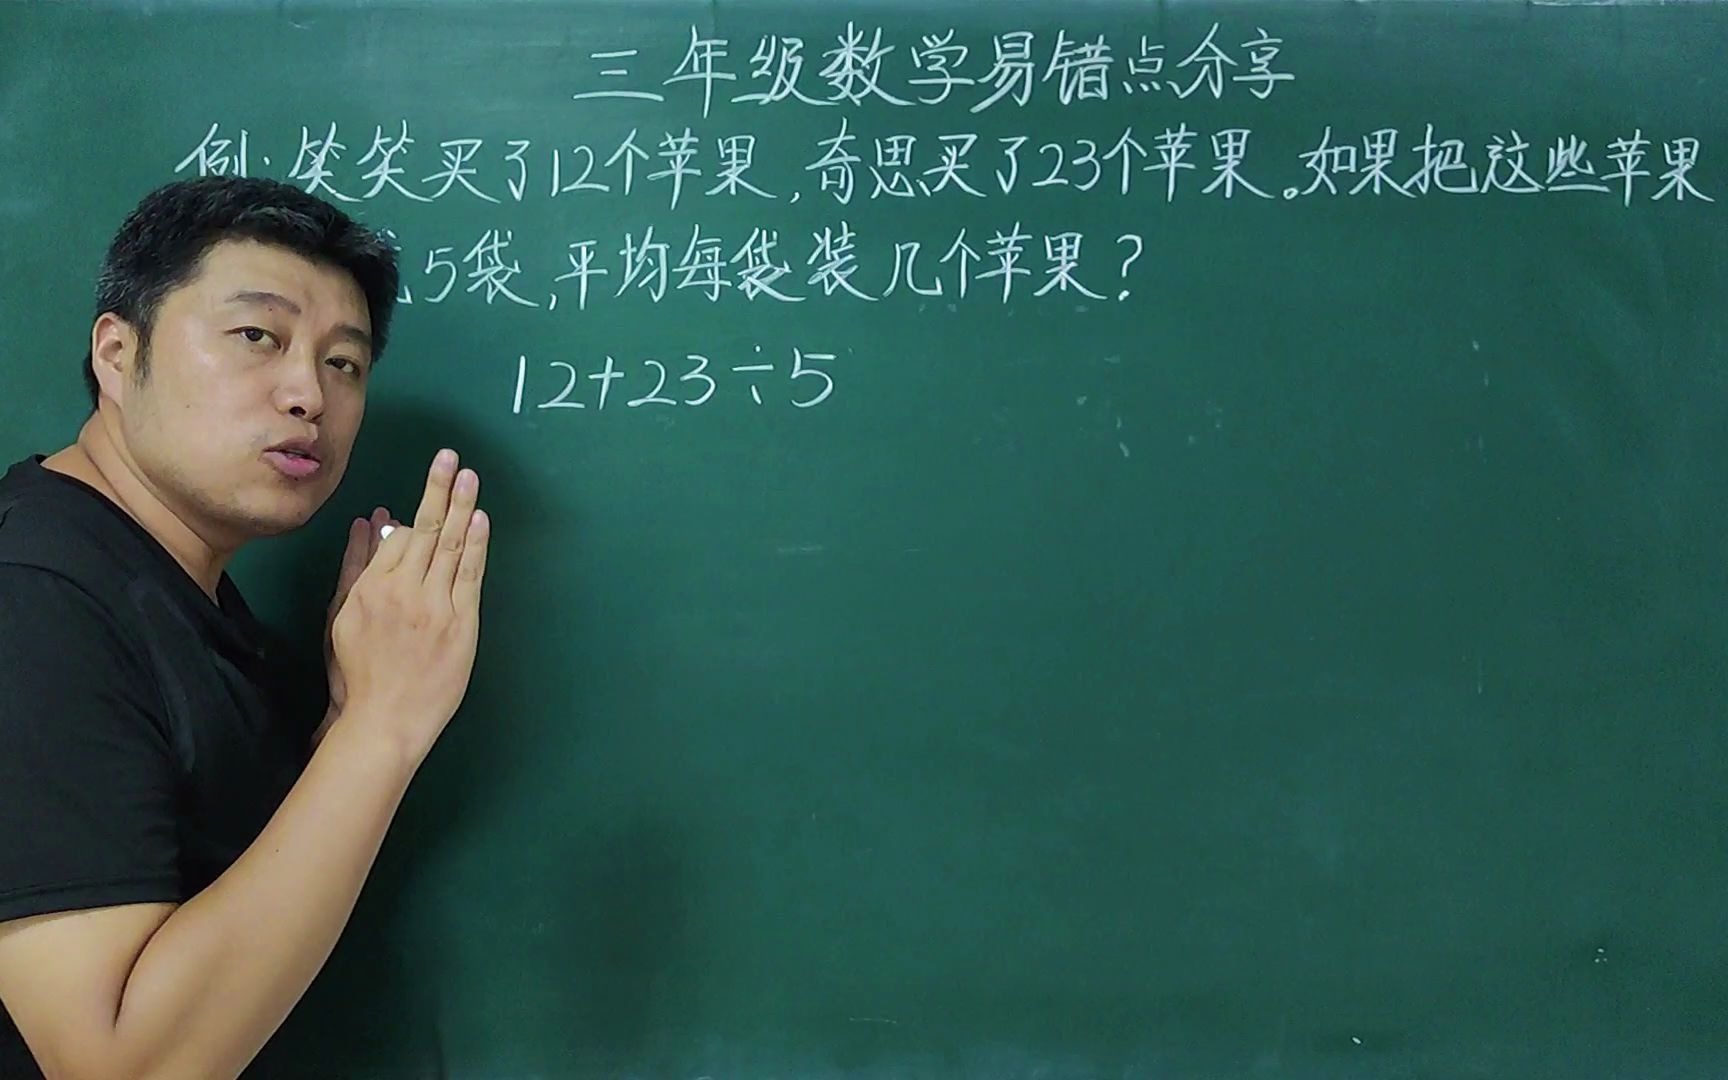 三年级数学易错点分享
例:笑笑买了12个苹果,奇思买了23个苹果。如果把这些苹果
5袋,平均每袋装几个苹果?
12+23÷5